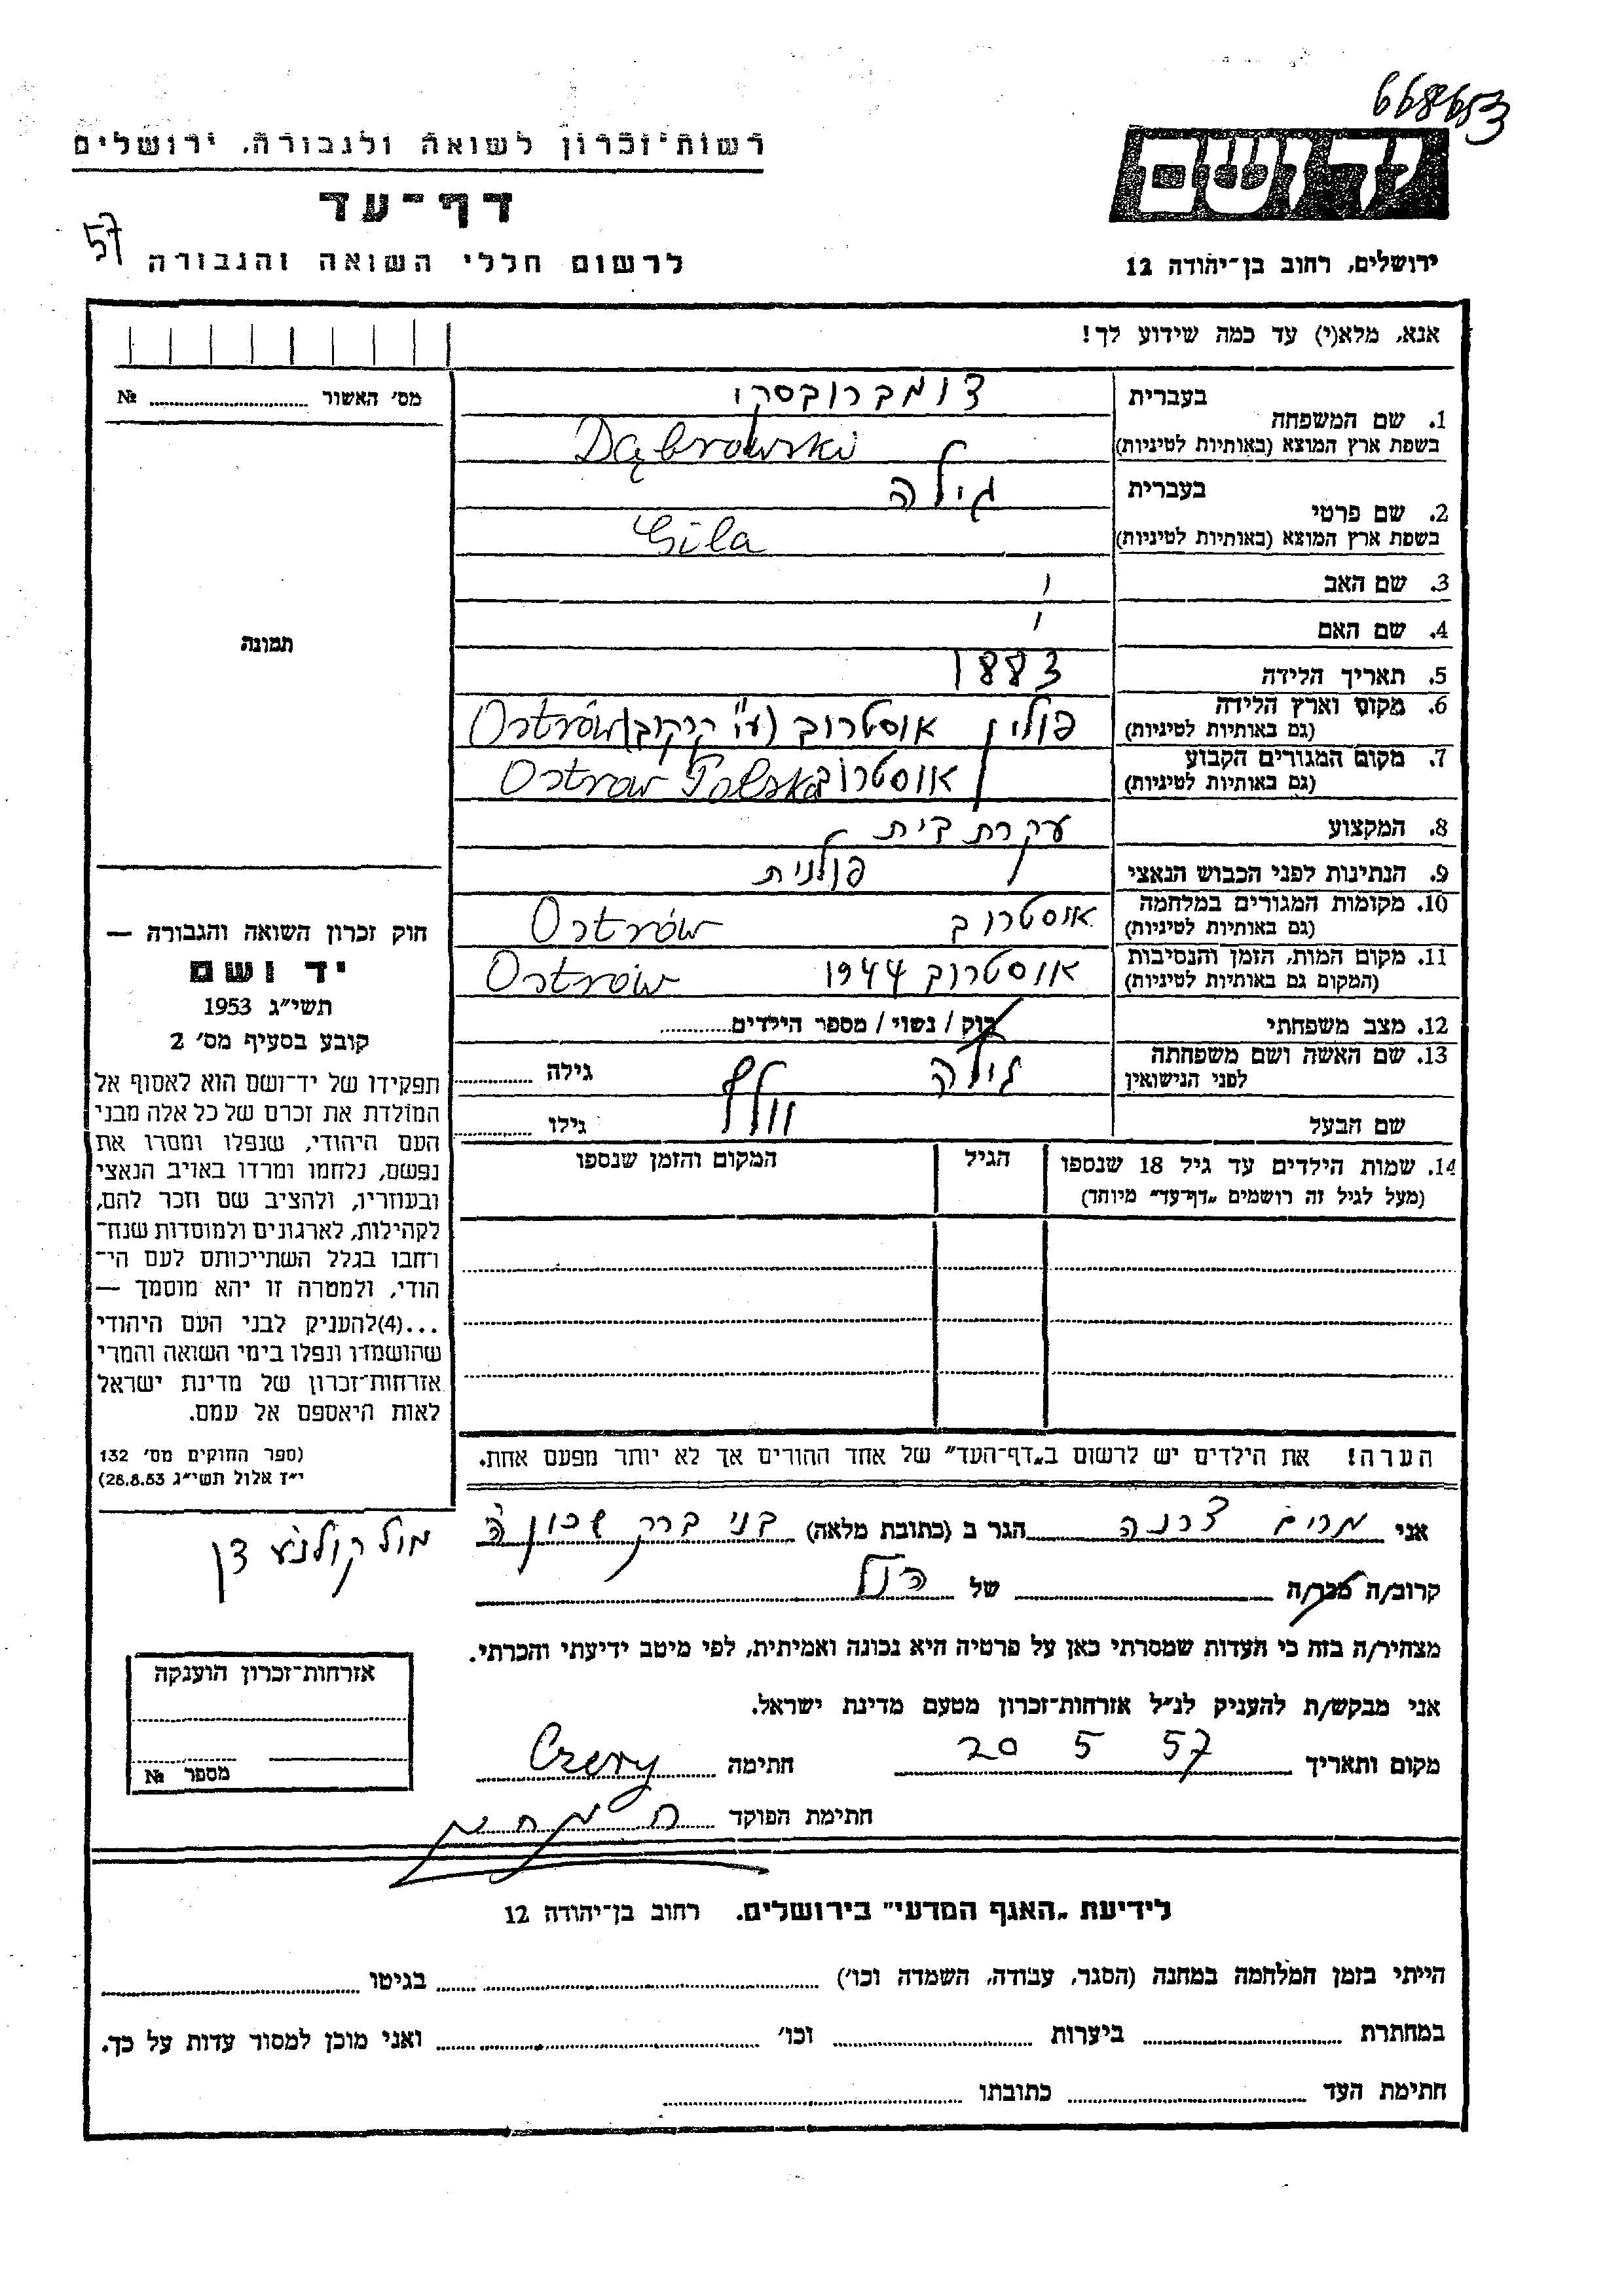 668653
רשות־זכרון לשואה ולגבורה, ירושלים
יד ושם
דף־עד
57
לרשום חללי השואה והגבורה
ירושלים, רחוב בן־יהודה 12
אנא, מלא(י) עד כמה שידוע לך!
מס׳ האשור № 
תמונה
בעברית
1. שם המשפחה
דומברובסקי
בשפת ארץ המוצא (באותיות לטיניות)
Dąbrowski
בעברית
2. שם פרטי
גילה
בשפת ארץ המוצא (באותיות לטיניות)
Gila
3. שם האב
4. שם האם
5. תאריך הלידה 1883
6. מקום וארץ הלידה
(גם באותיות לטיניות)
פולין אוסטרוב (ע״י קרקוב) Ostrów
7. מקום המגורים הקבוע
(גם באותיות לטיניות)
אוסטרוב Ostrow Polska
8. המקצוע עקרת בית
9. הנתינות לפני הכבוש הנאצי פולנית
10. מקומות המגורים במלחמה
(גם באותיות לטיניות)
אוסטרוב Ostrów
11. מקום המות, הזמן והנסיבות
(המקום גם באותיות לטיניות)
אוסטרוב 1944 Ostrów
12. מצב משפחתי רוק / נשוי / מספר הילדים
13. שם האשה ושם משפחתה
לפני הנישואין
גילה וולף גילה
שם הבעל גילו
14. שמות הילדים עד גיל 18 שנספו
(מעל לגיל זה רושמים „דף־עד״ מיוחד)
הגיל
המקום והזמן שנספו
הערה! את הילדים יש לרשום ב„דף־העד״ של אחד ההורים אך לא יותר מפעם אחת.
חוק זכרון השואה והגבורה —
יד ושם
תשי״ג 1953
קובע בסעיף מס׳ 2
תפקידו של יד־ושם הוא לאסוף אל
המולדת את זכרם של כל אלה מבני
העם היהודי, שנפלו ומסרו את
נפשם, נלחמו ומרדו באויב הנאצי
ובעוזריו, ולהציב שם וזכר להם,
לקהילות, לארגונים ולמוסדות שנח־
רחבו בגלל השתייכותם לעם הי־
הודי, ולמטרה זו יהא מוסמך —
...(4)להעניק לבני העם היהודי
שהושמדו ונפלו בימי השואה והמרי
אזרחות־זכרון של מדינת ישראל
לאות היאספם אל עמם.
(ספר החוקים מס׳ 132
י״ז אלול תשי״ג 28.8.53)
אני מרים צרנה הגר ב (כתובת מלאה) בני ברק שכון ה׳
מול קולנע דן
קרוב/ה מכר/ה של הנ״ל
מצהיר/ה בזה כי העדות שמסרתי כאן על פרטיה היא נכונה ואמיתית, לפי מיטב ידיעתי והכרתי.
אני מבקש/ת להעניק לנ״ל אזרחות־זכרון מטעם מדינת ישראל.
מקום ותאריך 20 5 57 חתימה Czerny
חתימת הפוקד
אזרחות־זכרון הוענקה
מספר №
לידיעת „האגף המדעי״ בירושלים. רחוב בן־יהודה 12
הייתי בזמן המלחמה במחנה (הסגר, עבודה, השמדה וכו׳) בגיטו
במחתרת ביערות וכו׳ ואני מוכן למסור עדות על כך.
חתימת העד כתובתו